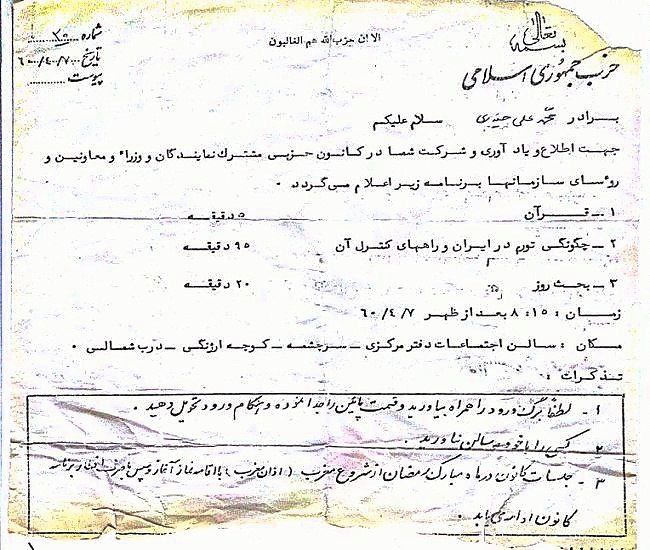 بسمه تعالی
الا ان حزب الله هم الغالبون
حزب جمهوری اسلامی
شماره ۳۵
تاریخ ۶۰/۴/۷
پیوست
برادر محمد علی سلام علیکم
جهت اطلاع و یاد آوری و شرکت شما در کانون حزبی مشترك نمایندگان و وزراء و معاونین و
روٴسای سازمانها برنامه زیر اعلام می گردد .
۱ ــ قــرآن ۵ دقیقــه
۲ ــ چگونگی تورم در ایران و راههای کنترل آن ۹۵ دقیقــه
۳ ــ بحث روز ۲۰ دقیقــه
زمــان : ۸:۱۵ بعد از ظهر ۶۰/۴/۷
مکــان : سالن اجتماعات دفتر مرکزی ــ سرچشمه ــ کوچه ــ درب شمالــی .
تـذکـرات :
۱ - لطفاً برگ ورود را همراه بیاورید و قسمت پائین را جدا نموده و هنگام ورود تحویل دهید .
۲ - کسی را با خود به سالن نیاورید .
۳ - جلسات کانون در ماه مبارک رمضان از شروع مغرب ( اذان مغرب ) با اقامه نماز آغاز و پس از افطار برنامه
کانون ادامه می یابد .